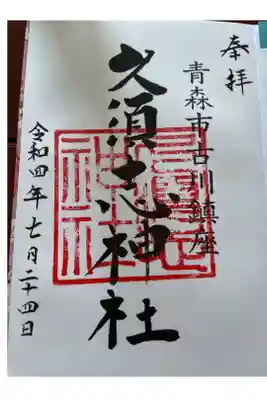 奉拝
青森市古川鎮座
久須志神社
令和四年七月二十四日